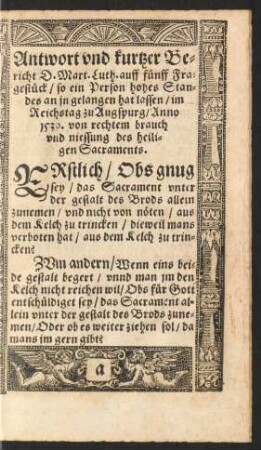 Antwort vnd kurtzer Be-
richt D. Mart. Luth. auff fünff Fra-
gestück / so ein Person hohes Stan-
des an jn gelangen hat lassen / im
Reichstag zu Augspurg / Anno
1530. von rechtem brauch
vnd niessung des heili-
gen Sacraments.
ERstlich / Obs gnug
sey / das Sacrament vnter
der gestalt des Brods allein
zunemen / vnd nicht von nöten / aus
dem Kelch zu trincken / dieweil mans
verboten hat / aus dem Kelch zu trin-
cken?
ZVm andern / Wenn eins bei-
de gestalt begert / vnnd man jm den
Kelch nicht reichen wil / Obs für Gott
entschüldiget sey / das Sacrament al-
lein vnter der gestalt des Brods zune-
men / Oder ob es weiter ziehen sol / da
mans jm gern gibt?
a